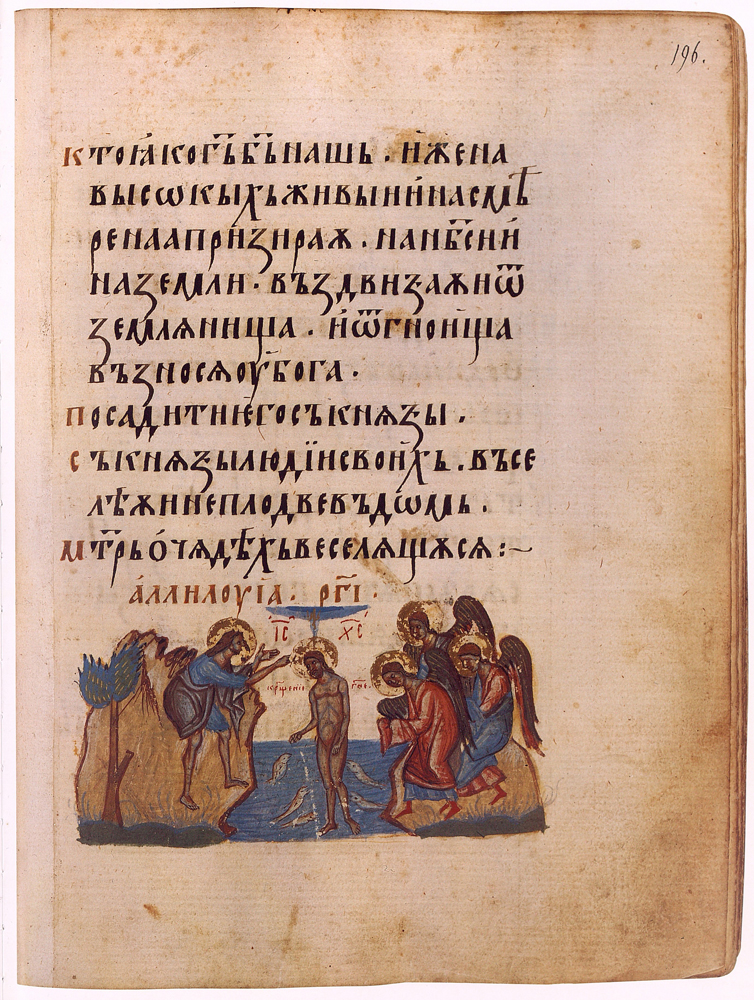 196.
Кто ꙗко г҃ь б҃ь нашь · и҆же на
высѡкыхь живыи и҆ на смѣ
ренаа призираѧ · на нб҃си и҆
на земли · въздвиꙁаѧи ѿ
землѧ нища · и҆ ѿ гноища
възносѧ оубога ·
Посадити е҆го съ кнѧꙁы ·
съ кнѧꙁы людїи своихь · Въсе
лѣѧи неплодвевь дѡмь ·
Мт҃рь о҆ чѧдѣхь веселѧщѫсѧ :~
а҆ллилоуїа · рг҃і ·
І҃С Х҃С